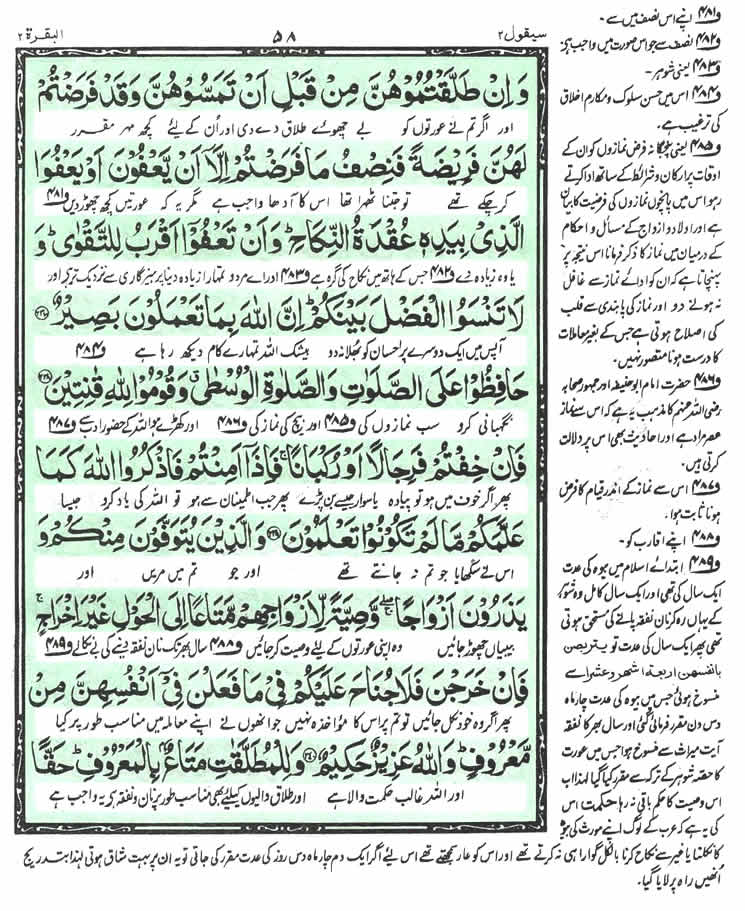 سیقول ۲
۵۸
البقرۃ ۲
وَاِنْ طَلَّقْتُمُوْهُنَّ مِنْ قَبْلِ اَنْ تَمَسُّوْهُنَّ وَقَدْ فَرَضْتُمْ
اور اگر تم نے عورتوں کو بے چھوئے طلاق دے دی اور اُن کے لئے کچھ مہر مقرر
لَهُنَّ فَرِيْضَةً فَنِصْفُ مَا فَرَضْتُمْ اِلَّاۤ اَنْ يَّعْفُوْنَ اَوْ يَعْفُوَا
کرچکے تھے تو جتنا ٹھہرا تھا اس کا آدھا واجب ہے مگر یہ کہ عورتیں کچھ چھوڑدیں و۴۸۱
الَّذِيْ بِيَدِهٖ عُقْدَةُ النِّكَاحِ ؕ وَاَنْ تَعْفُوْۤا اَقْرَبُ لِلتَّقْوٰى ؕ وَ
یا وہ زیادہ دے و۴۸۲ جس کے ہاتھ میں نکاح کی گرہ ہے و۴۸۳ اور اے مردو تمہارا زیادہ دینا پرہیزگاری سے نزدیک تر ہے اور
لَا تَنْسَوُا الْفَضْلَ بَيْنَكُمْ ؕ اِنَّ اللّٰهَ بِمَا تَعْمَلُوْنَ بَصِيْرٌ ﴿۲۳۷﴾
آپس میں ایک دوسرے پر احسان کو بھلا نہ دو بیشک اللہ تمہارے کام دیکھ رہا ہے و۴۸۴
حَافِظُوْا عَلَى الصَّلَوٰتِ وَالصَّلٰوةِ الْوُسْطٰى ۗ وَقُوْمُوْا لِلّٰهِ قٰنِتِيْنَ ﴿۲۳۸﴾
نگہبانی کرو سب نمازوں کی و۴۸۵ اور بیچ کی نماز کی و۴۸۶ اور کھڑے ہو اللہ کے حضور ادب سے و۴۸۷
فَاِنْ خِفْتُمْ فَرِجَالًا اَوْ رُكْبَانًا ۚ فَاِذَاۤ اَمِنْتُمْ فَاذْكُرُوا اللّٰهَ كَمَا
پھر اگر خوف میں ہو تو پیادہ یا سوار جیسے بن پڑے پھر جب اطمینان سے ہو تو اللہ کی یاد کرو جیسا
عَلَّمَكُمْ مَّا لَمْ تَكُوْنُوْا تَعْلَمُوْنَ ﴿۲۳۹﴾ وَالَّذِيْنَ يُتَوَفَّوْنَ مِنْكُمْ وَ
اس نے سکھایا جو تم نہ جانتے تھے اور جو تم میں مریں اور
يَذَرُوْنَ اَزْوَاجًا ۖۚ وَّصِيَّةً لِّاَزْوَاجِهِمْ مَّتَاعًا اِلَى الْحَوْلِ غَيْرَ اِخْرَاجٍ ۚ
بیبیاں چھوڑ جائیں وہ اپنی عورتوں کے لئے وصیت کر جائیں و۴۸۸ سال بھر تک نان نفقہ دینے کی بے نکالے و۴۸۹
فَاِنْ خَرَجْنَ فَلَا جُنَاحَ عَلَيْكُمْ فِيْ مَا فَعَلْنَ فِيْۤ اَنْفُسِهِنَّ مِنْ
پھر اگر وہ خود نکل جائیں تو تم پر اس کا مواخذہ نہیں جو انھوں نے اپنے معاملہ میں مناسب طور پر کیا
مَّعْرُوْفٍ ؕ وَاللّٰهُ عَزِيْزٌ حَكِيْمٌ ﴿۲۴۰﴾ وَلِلْمُطَلَّقٰتِ مَتَاعٌۢ بِالْمَعْرُوْفِ ؕ حَقًّا
اور اللہ غالب حکمت والا ہے اور طلاق والیوں کیلئے بھی مناسب طور پر نان ونفقہ ہے یہ واجب ہے
و۴۸۱ اپنے اس نصف میں سے۔
و۴۸۲ نصف سے جو اس صورت میں واجب ہے
و۴۸۳ یعنی شوہر۔
و۴۸۴ اس میں حسن سلوک و مکارم اخلاق
کی ترغیب ہے۔
و۴۸۵ یعنی پنجگانہ فرض نمازوں کو ان کے
اوقات پر ارکان و شرائط کے ساتھ ادا کرتے
رہو اس میں پانچوں نمازوں کی فرضیت کا بیان
ہے اور اولاد و ازواج کے مسائل و احکام
کے درمیان میں نماز کا ذکر فرمانا اس نتیجہ پر
پہنچاتا ہے کہ ان کو ادائے نماز سے غافل
نہ ہونے دو اور نماز کی پابندی سے قلب
کی اصلاح ہوتی ہے جس کے بغیر معاملات
کا درست ہونا متصور نہیں۔
و۴۸۶ حضرت امام ابوحنیفہ اور جمہور صحابہ
رضی اللہ عنہم کا مذہب یہ ہے کہ اس سے نماز
عصر مراد ہے اور احادیث بھی اس پر دلالت
کرتی ہیں۔
و۴۸۷ اس سے نماز کے اندر قیام کا فرض
ہونا ثابت ہوا۔
و۴۸۸ اپنے اقارب کو۔
و۴۸۹ ابتدائے اسلام میں بیوہ کی عدت
ایک سال کی تھی اور ایک سال کامل وہ شوہر
کے یہاں رہ کر نان نفقہ پانے کی مستحق ہوتی
تھی پھر ایک سال کی عدت تو یتربصن
بانفسھن اربعۃ اشھر وعشرا سے
منسوخ ہوئی جس میں بیوہ کی عدت چار ماہ
دس دن مقرر فرمائی گئی اور سال بھر کا نفقہ
آیت میراث سے منسوخ ہوا جس میں عورت
کا حصہ شوہر کے ترکہ سے مقرر کیا گیا لہٰذا اب
اس وصیت کا حکم باقی نہ رہا حکمت اس
کی یہ ہے کہ عرب کے لوگ اپنے مورث کی بیوہ
کا نکلنا یا غیر سے نکاح کرنا بالکل گوارا ہی نہ کرتے تھے اور اس کو عار سمجھتے تھے اس لئے اگر ایک دم چار ماہ دس روز کی عدت مقرر کی جاتی تو یہ ان پر بہت شاق ہوتی لہٰذا بتدریج
انھیں راہ پر لایا گیا۔